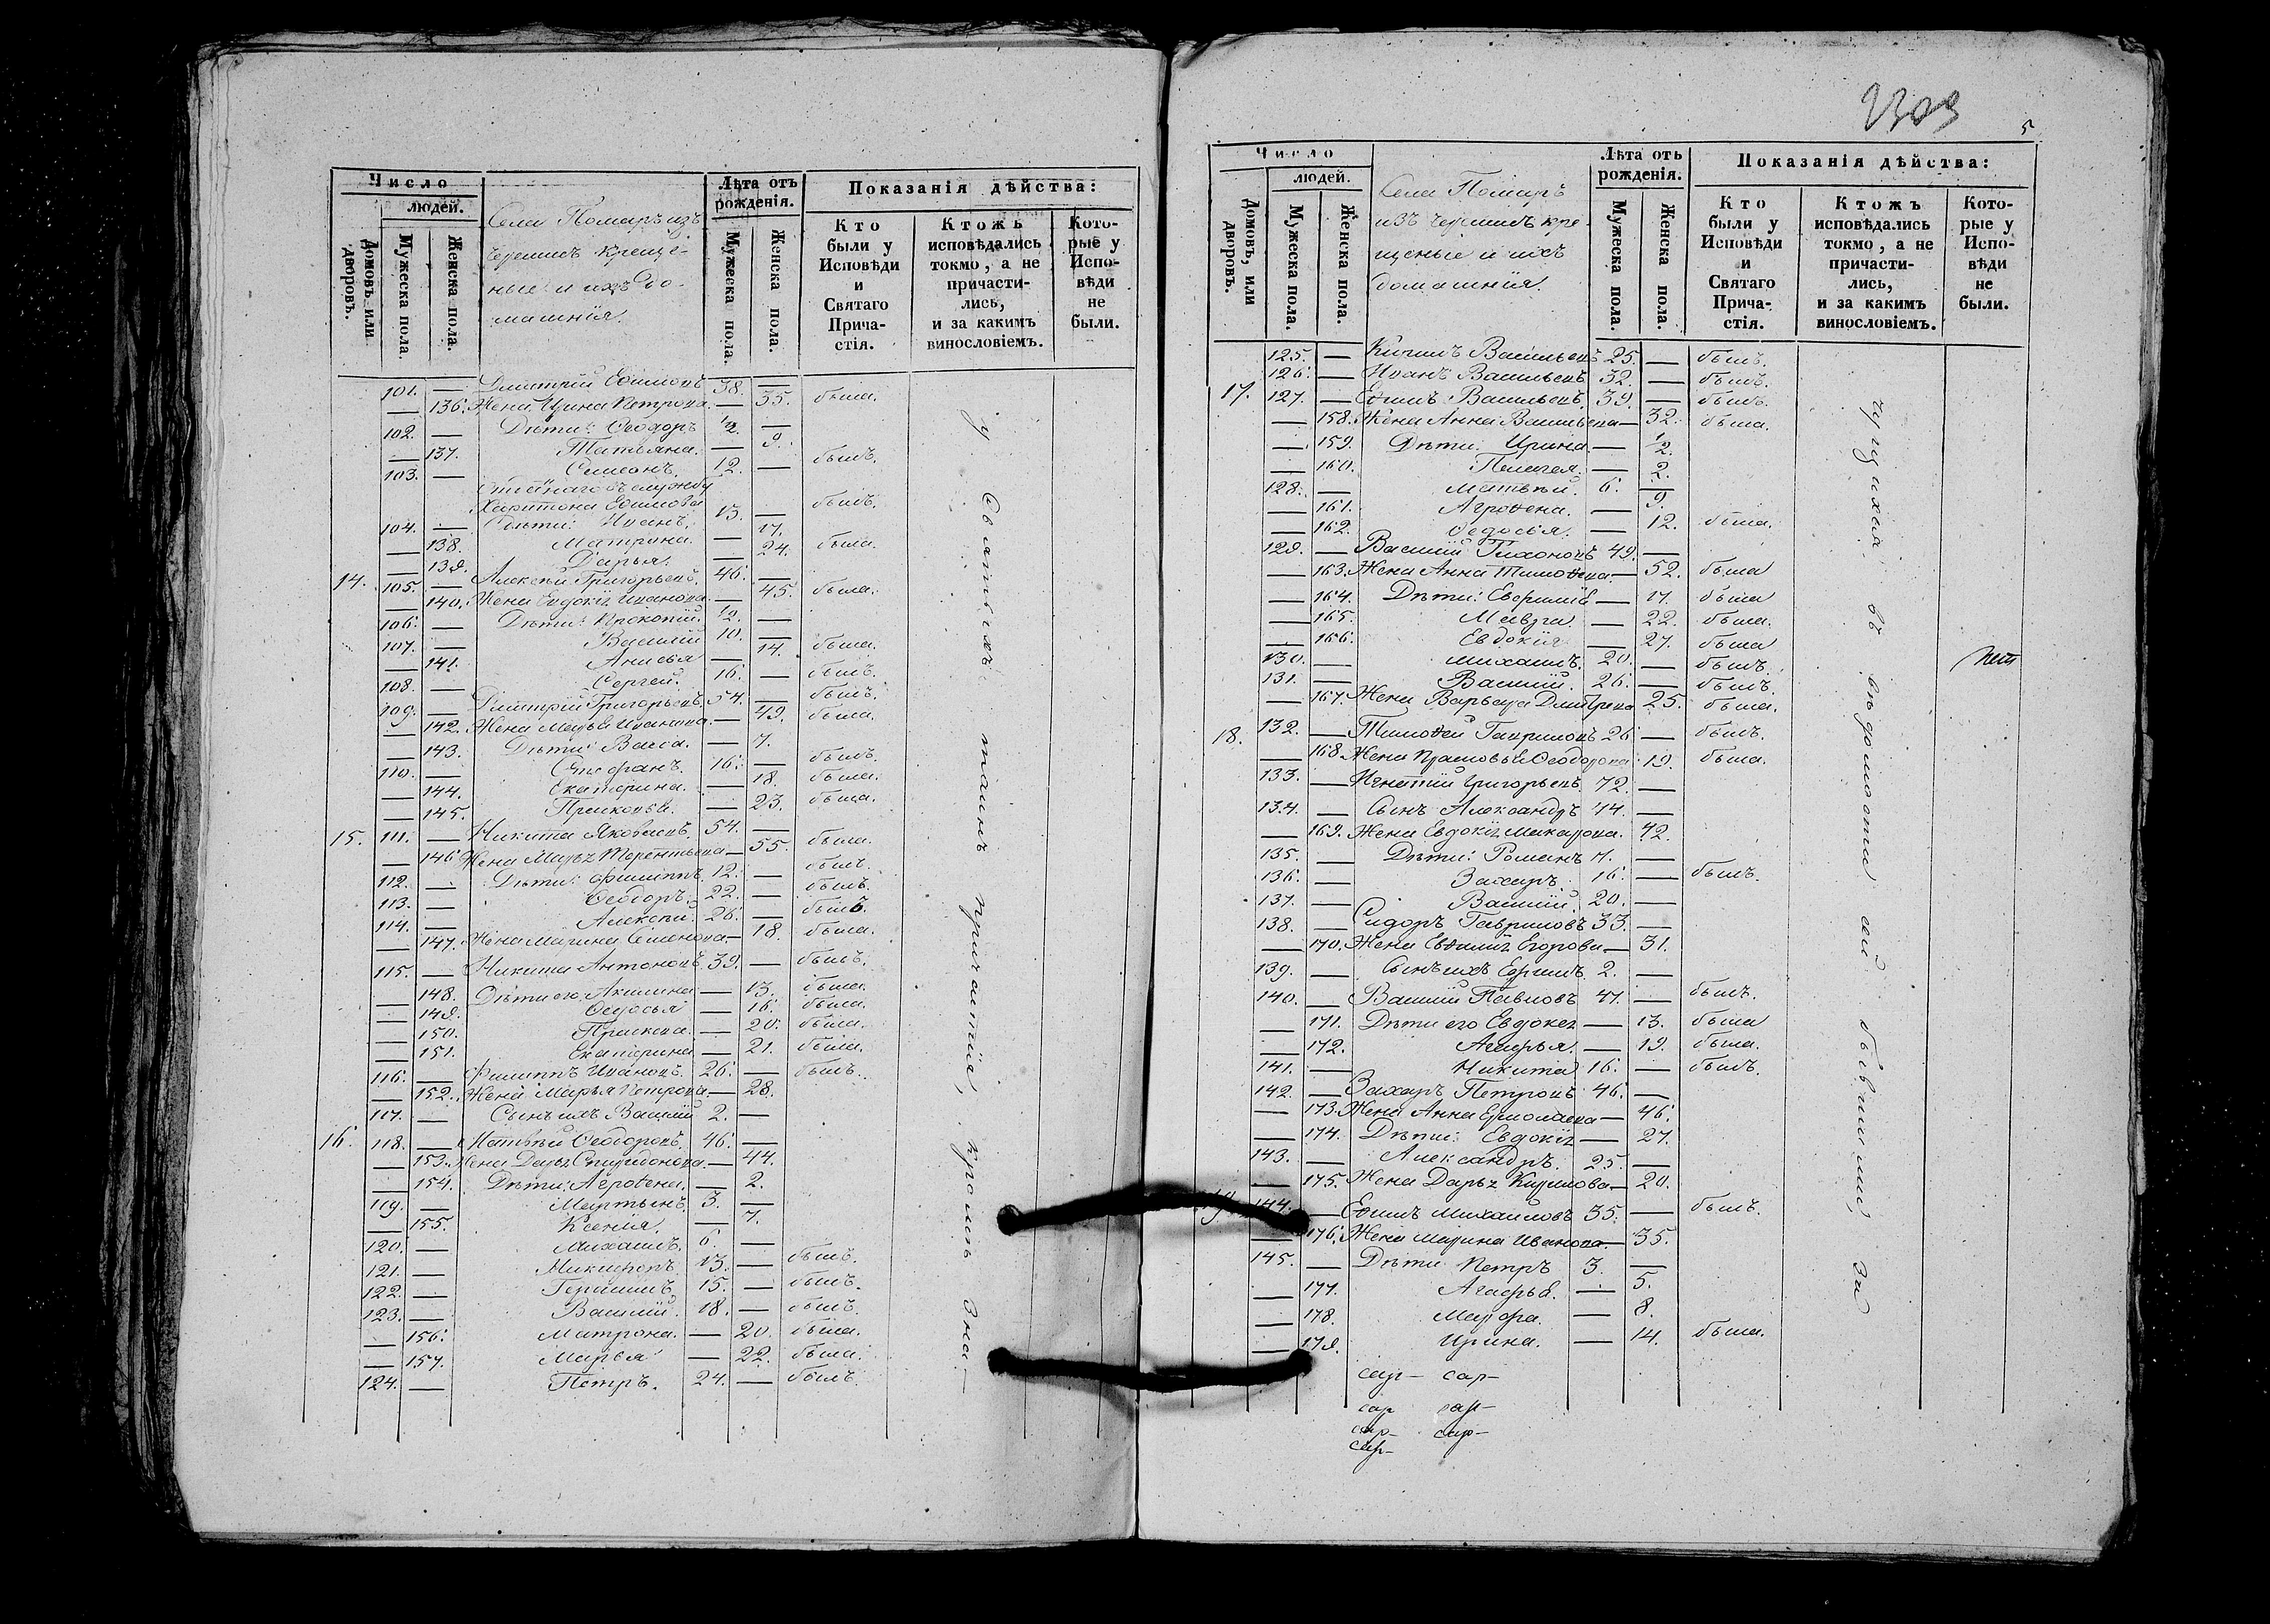 Число
людей.
Домовъ или дворовъ.
Мужеска пола.
Женска пола.
Села Помаръ изъ
черемисъ креще-
ные и ихъ до-
машнія.
Лѣта отъ рожденія.
Мужеска пола.
Женска пола.
Показанія дѣйства:
Кто были у Исповѣди и Святаго Прича- стія.
Ктожъ исповѣдались токмо, а не причасти- лись, и за какимъ винословіемъ.
Кото- рые у Испо- вѣди не были.
101. — Дмитрій Ефимовъ 38. —
— 136. Жена Ирина Петрова. — 35. была.
102. — Дѣти: Ѳеодоръ 1/2. —
— 137. Татьяна. — 9.
103. — Симеонъ. 12. — былъ.
Отданаго въ службу
Харитона Ефимова
104. — Дѣти: Иванъ. 13. — былъ.
— 138. Матрона. — 17.
— 139. Дарья. — 24. была.
14. 105. — Алексѣй Григорьевъ. 46. —
— 140. Жена Евдокія Иванова. — 45. была.
106. — Дѣти: Прокопій. 1/2. —
107. — Василій 10. —
— 141. Анисья — 14. была.
108. — Сергей. 16. — былъ.
109. — Дмитрій Григорьевъ. 54. — былъ.
— 142. Жена Марья Иванова. — 49. была.
— 143. Дѣти: Васса. — 7.
110. — Стефанъ. 16. — былъ.
— 144. Екатерина. — 18. была.
— 145. Прасковья. — 23. была.
15. 111. — Никита Яковлевъ. 54. —
— 146 Жена Марья Терентьева — 55. была.
112. — Дѣти: Филиппъ. 12. — былъ.
113. — Ѳеодоръ. 22. — былъ.
114. — Алексѣй. 26. — былъ.
— 147. Жена Марина Семенова. — 18. была.
115. — Никита Антоновъ. 39. — былъ.
— 148. Дѣти его: Акилина — 13. была.
— 149. Ѳедосья — 16. была.
— 150. Праскева. — 20. была.
— 151. Екатерина — 21. была.
116. — Филиппъ Ивановъ. 26. — былъ.
— 152. Жена Марья Петрова. — 28.
117. — Сынъ ихъ Василій 2. —
16. 118. — Матвѣй Ѳеодоровъ. 46. —
— 153. Жена Дарья Спиридонова. — 44.
— 154. Дѣти: Агрофена. — 2.
119. — Мартынъ. 3. —
— 155. Ксенія. — 7.
120. — Михаилъ. 6. —
121. — Никифоръ. 13. — былъ.
122. — Герасимъ. 15. — былъ.
123. — Василій. 18. — былъ.
— 156. Матрона. — 20. была.
— 157. Марья — 22. была.
124. — Петръ. 24. — былъ.
у Святыхъ таинъ причастія, кромѣ зна-
2303
5
Число
людей.
Домовъ, или дворовъ.
Мужеска пола.
Женска пола.
Села Помаръ
изъ черемисъ кре-
щеные и ихъ
домашнія.
Лѣта отъ рожденія.
Мужеска пола.
Женска пола.
Показанія дѣйства:
Кто были у Исповѣди и Святаго Прича- стія.
Ктожъ исповѣдались токмо, а не причасти- лись, и за какимъ винословіемъ.
Кото- рые у Испо- вѣди не были.
125. — Васильевъ 25. — былъ.
126. — Иванъ Васильевъ 32. — былъ.
17. 127. — Ефимъ Васильевъ. 39. — былъ.
— 158. Жена Анна Васильева — 32. была.
— 159. Дѣти: Ирина. — 1/2.
— 160. Пелагея. — 2.
128. — Матвѣй. 6. —
— 161. Агрофена. — 9.
— 162. Ѳедосья. — 12. была.
129. — Василій Тихоновъ 49. —
— 163. Жена Анна Тимофеева. — 52. была
— 164. Дѣти: Евфимія — 17. была
— 165. Мавра — 22. была.
— 166. Евдокія — 27. была
130. — Михаилъ. 20. — былъ.
131. — Василій. 26. — былъ.
— 167. Жена Варвара Дмитрева 25. была.
18. 132. — Тимофей Гавриловъ 26 — былъ.
— 168. Жена Прасковья Ѳеодорова. 19. была.
133. — Игнатій Григорьевъ 72. —
134. — Сынъ Александръ 44. —
— 169. Жена Евдокія Макарова. 42.
135. — Дѣти: Романъ 7. —
136. — Захаръ. 16. — былъ.
137. — Василій. 20. —
138. — Сидоръ Гавриловъ 33. —
— 170. Жена Егорова — 31.
139. — Сынъ ихъ Ефимъ 2. —
140. — Василій Павловъ 47. — былъ.
— 171. Дѣти его Евдокея — 13. была
— 172. Агафья. — 19. была.
141. — Никита 16. — былъ.
142. — Захаръ Петровъ 46. —
— 173. Жена Анна Ермолаева — 46.
— 174. Дѣти: Евдокія — 27.
143. — Александръ. 25. —
— 175. Жена Дарья Кирилова — 20.
19. 144. — Ефимъ Михаиловъ 35. — былъ.
— 176. Жена Марина Иванова. — 35.
145. — Дѣти Петръ 3. —
— 177. Агафья. — 5.
— 178. Марфа. — 8.
— 179. Ирина. — 14. была.
сар— сар—
сар сар—
сар— сар—
сар—
чущихся въ вѣдомости сей бывшими, за
нѣт